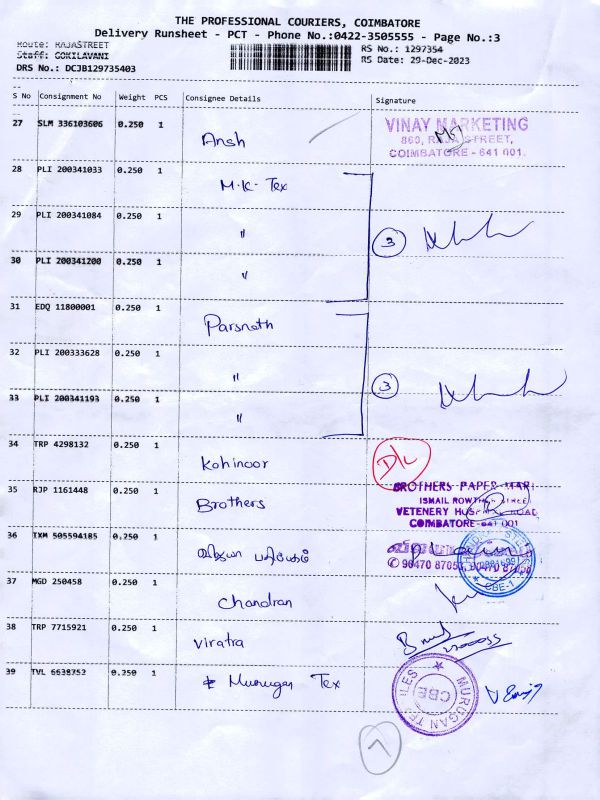 THE PROFESSIONAL COURIERS, COIMBATORE
Delivery Runsheet - PCT - Phone No.:0422-3505555 - Page No.:3
Route: RAJASTREET
Staff: GOKILAVANI
DRS No.: DCJB129735403
RS No.: 1297354
RS Date: 29-Dec-2023
S No Consignment No Weight PCS Consignee Details Signature
27 SLM 336103606 0.250 1 Ansh
VINAY MARKETING
860, RAJA STREET,
COIMBATORE - 641 001.
28 PLI 200341033 0.250 1 M.K. Tex
29 PLI 200341084 0.250 1 "
3
30 PLI 200341200 0.250 1 "
31 EDQ 11800001 0.250 1 Parsnath
32 PLI 200333628 0.250 1 "
3
33 PLI 200341193 0.250 1 "
34 TRP 4298132 0.250 1 Kohinoor
D/L
35 RJP 1161448 0.250 1 Brothers
BROTHERS PAPER MART
ISMAIL ROWTHER STREET
VETENERY HOSPITAL ROAD
COIMBATORE-641 001
36 IXM 505594185 0.250 1
37 MGD 250458 0.250 1 Chandran
CBE-1
38 TRP 7715921 0.250 1 Viratra
39 TVL 6638752 0.250 1 Murugan Tex
MURUGAN TEXTILES
CBE